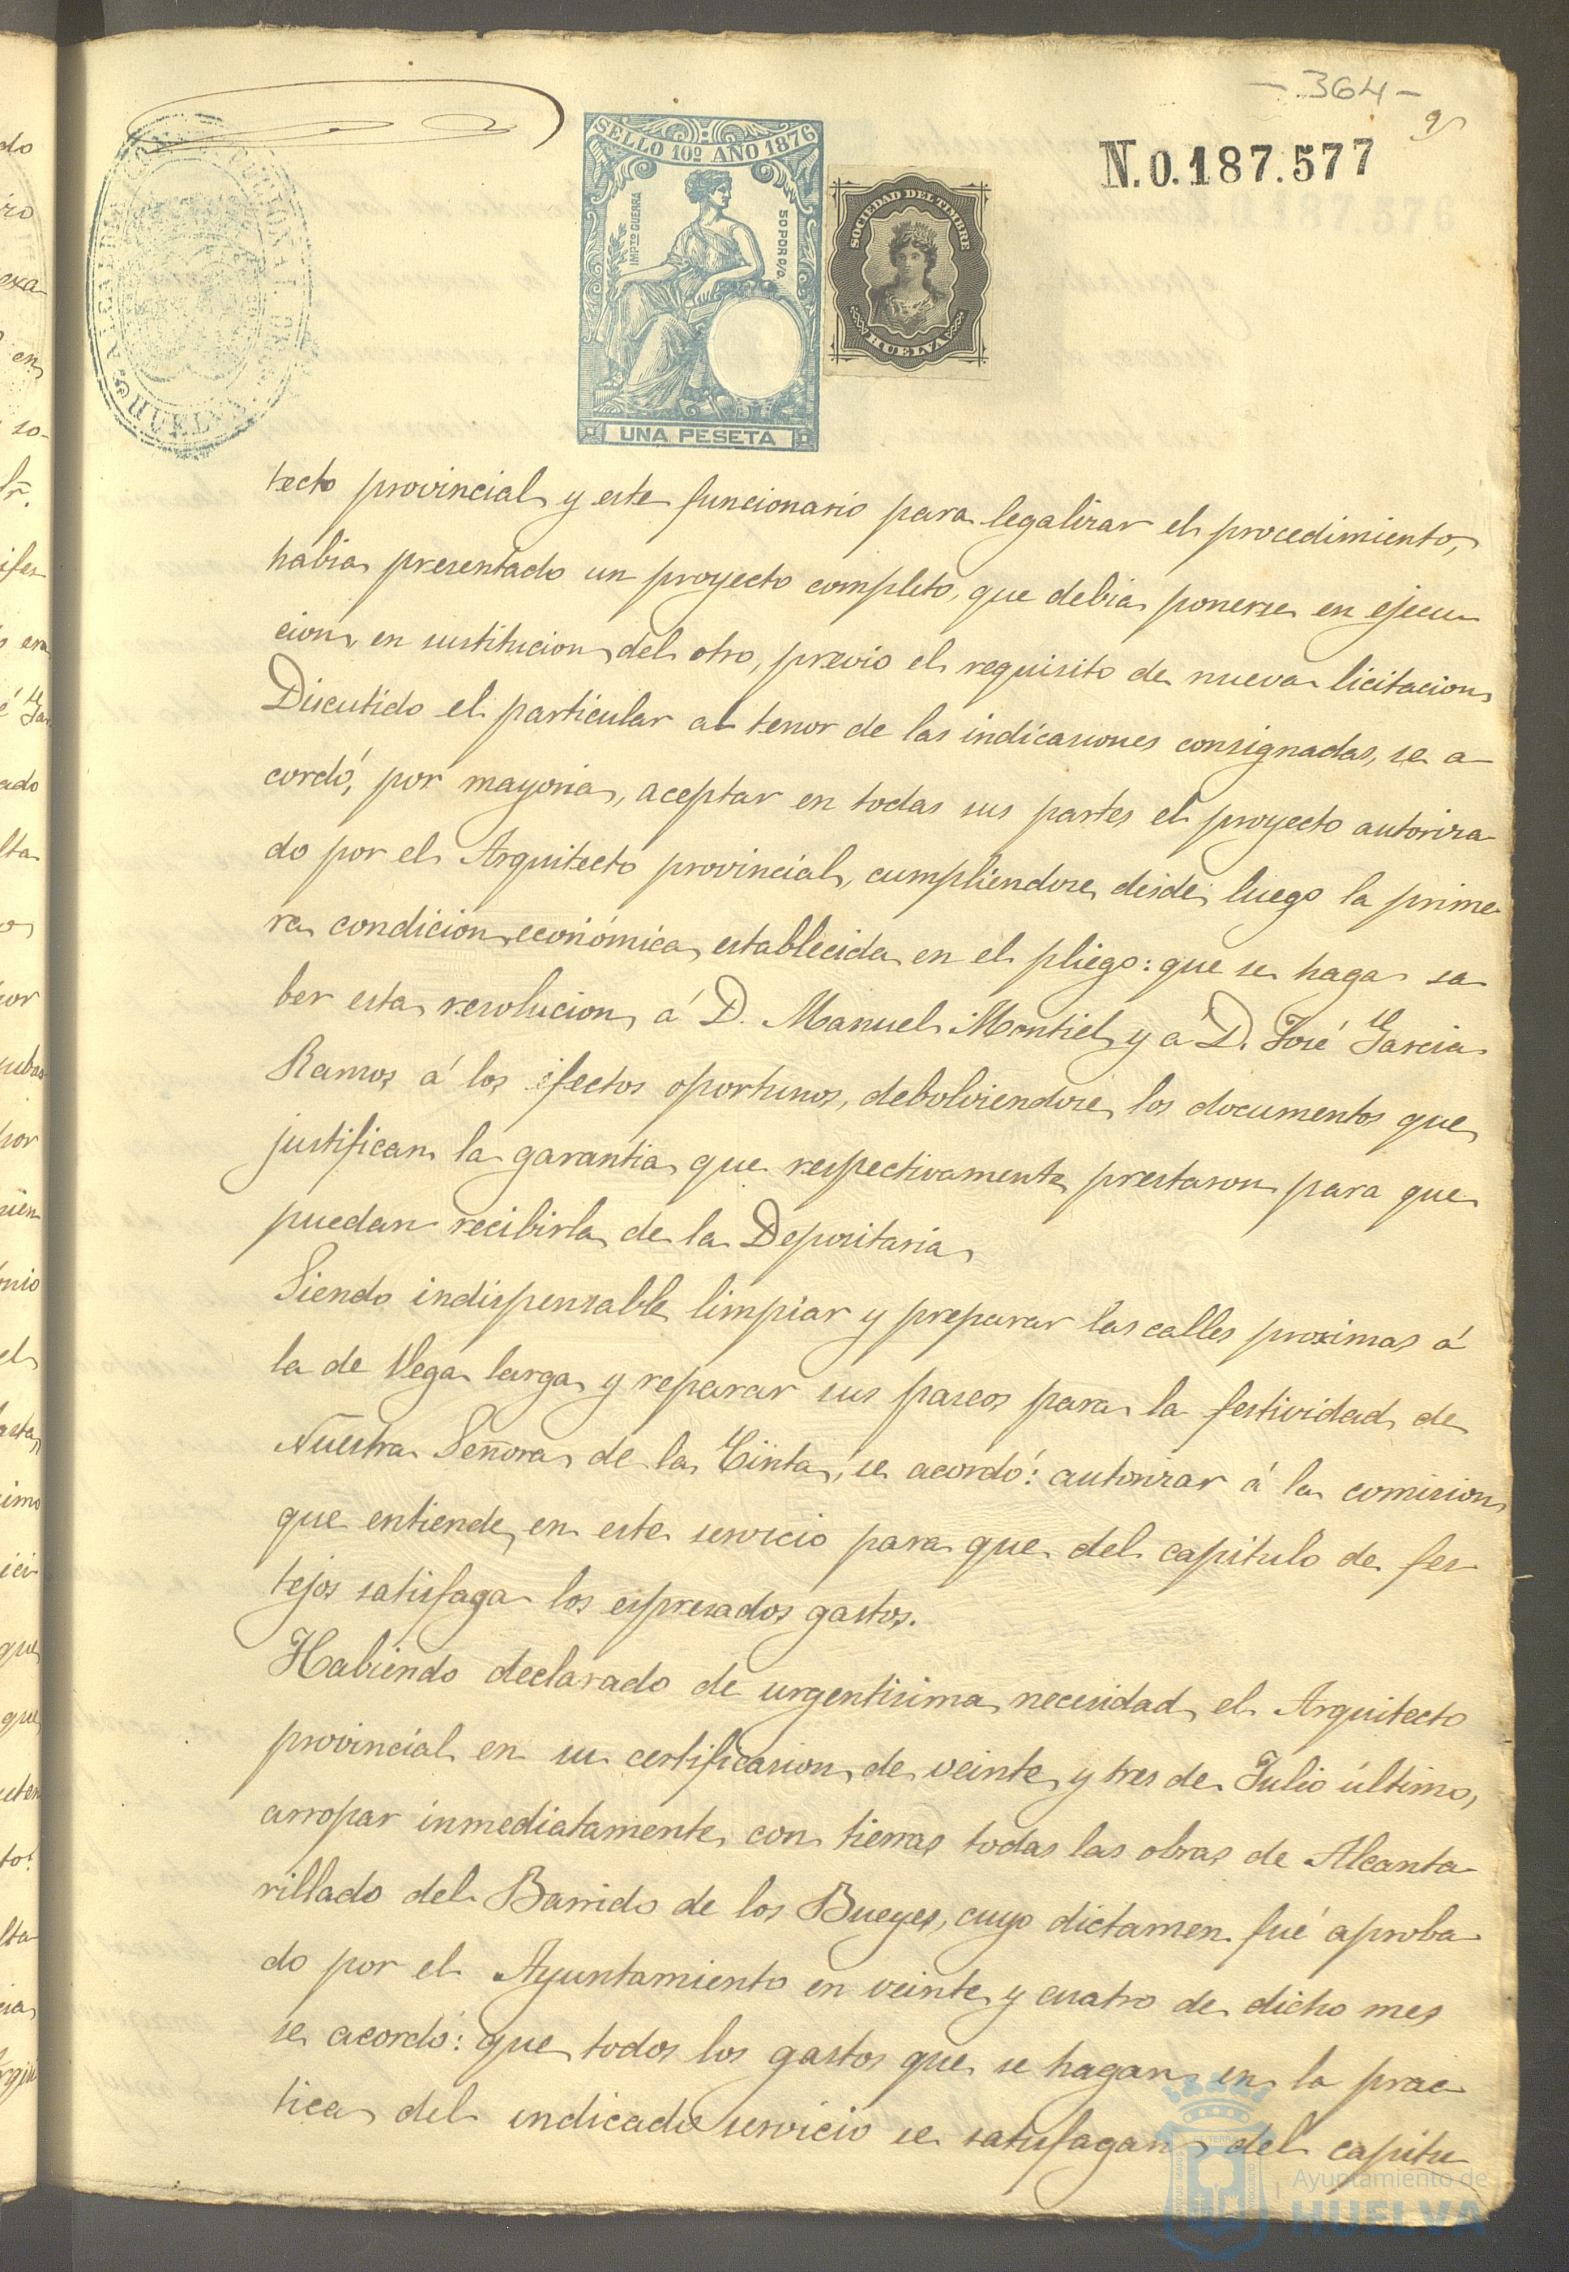 - 364 -
N.0.187.577
SELLO 10º AÑO 1876
IMPTO GUERRA
50 POR 0/0
UNA PESETA
SOCIEDAD DEL TIMBRE
HUELVA
ALCALDIA CONSTITUCIONAL DE
HUELVA
tecto provincial y este funcionario para legalizar el procedimiento,
habia presentado un proyecto completo, que debia ponerse en ejecu
cion, en sustitucion del otro, previo el requisito de nueva licitacion
Discutido el particular al tenor de las indicasiones consignadas, se a-
cordó, por mayoria, aceptar en todas sus partes el proyecto autoriza
do por el Arquitecto provincial, cumpliendose desde luego la prime-
ra condicion económica establecida en el pliego: que se haga sa
ber esta resolucion á D. Manuel Montiel y á D. José Garcia
Ramos á los efectos oportunos, debolviendose los documentos que
justifican la garantia que respectivamente prestaron para que
puedan recibirla de la Depositaria
Siendo indispensable limpiar y preparar las calles proximas á
la de Vega larga y reparar sus paseos para la festividad de
Nuestra Señora de la Cinta, se acordó: autorizar á la comision
que entiende en este servicio para que del capitulo de fes
tejos satisfaga los espresados gastos.
Habiendo declarado de urgentisima necesidad el Arquitecto
provincial en su certificasion de veinte y tres de Julio último,
arropar inmediatamente con tierras todas las obras de Alcanta-
rillado del Barrido de los Bueyes, cuyo dictamen fué aproba-
do por el Ayuntamiento en veinte y cuatro de dicho mes
se acordó: que todos los gastos que se hagan en la prac
tica del indicado servicio se satisfagan del capitu
Ayuntamiento de
HUELVA